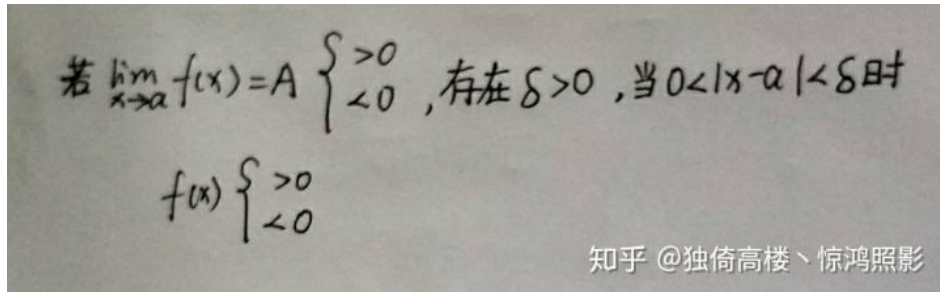 若 lim x→a f(x)=A { >0 <0 , 存在 δ>0 , 当 0<|x-a|<δ时
f(x) { >0 <0
知乎 @独倚高楼丶惊鸿照影